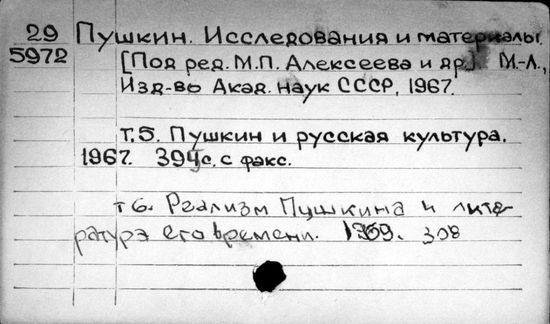 29 Пушкин. Исследования и материалы.
5972 [Под ред. М.П. Алексеева и др.] М.-Л.,
Изд-во Акад. наук СССР, 1967.
т.5. Пушкин и русская культура.
1967. 394с. с факс.
т 6. Реализм Пушкина и лите-
ратура его времени. 1969. 308